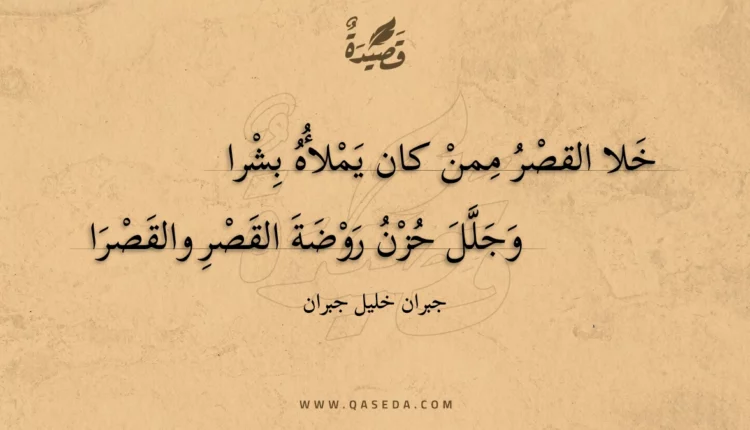 قَصِيدَةٌ
خَلا القصْرُ مِمنْ كان يَمْلأُهُ بِشْرا
وَجَلَّلَ حُزْنُ رَوْضَةَ القَصْرِ والقَصْرَا
جبران خليل جبران
WWW.QASEDA.COM